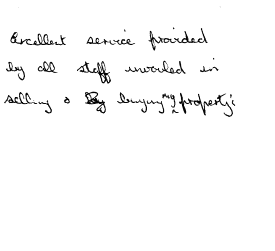 Excellent service provided
by all staff involved in
selling & buying my property.